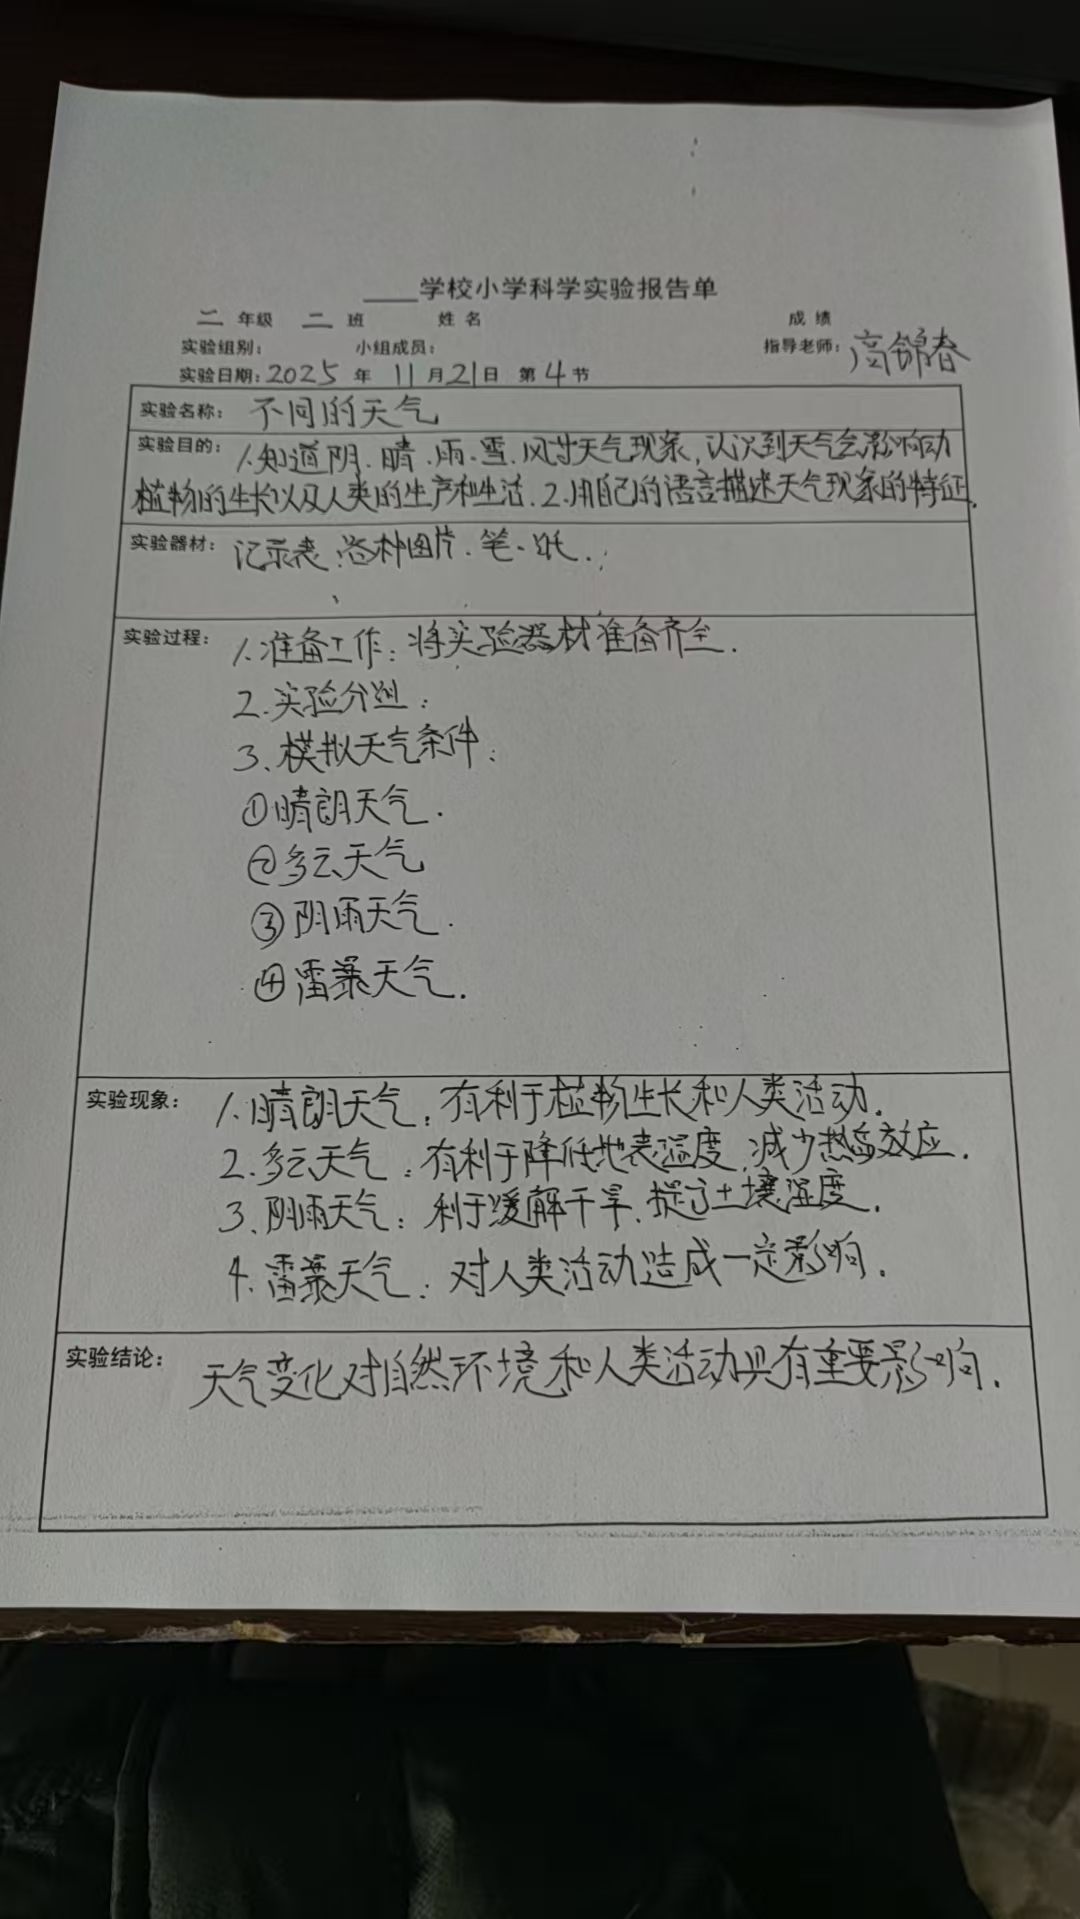 ____学校小学科学实验报告单
二 年级 二 班 姓名 成绩
实验组别： 小组成员： 指导老师：高锦春
实验日期：2025 年 11 月 21 日 第 4 节
实验名称： 不同的天气
实验目的： 1.知道阴、晴、雨、雪、风等天气现象，认识到天气会影响动
植物的生长以及人类的生产和生活．2.用自己的语言描述天气现象的特征．
实验器材： 记录表、各种图片、笔、纸．
实验过程： 1.准备工作：将实验器材准备齐全．
2.实验分组：
3.模拟天气条件：
①晴朗天气．
②多云天气
③阴雨天气．
④雷暴天气．
实验现象： 1.晴朗天气：有利于植物生长和人类活动．
2.多云天气：有利于降低地表温度，减少热岛效应．
3.阴雨天气：利于缓解干旱，提高土壤湿度．
4.雷暴天气：对人类活动造成一定影响．
实验结论： 天气变化对自然环境和人类活动具有重要影响．